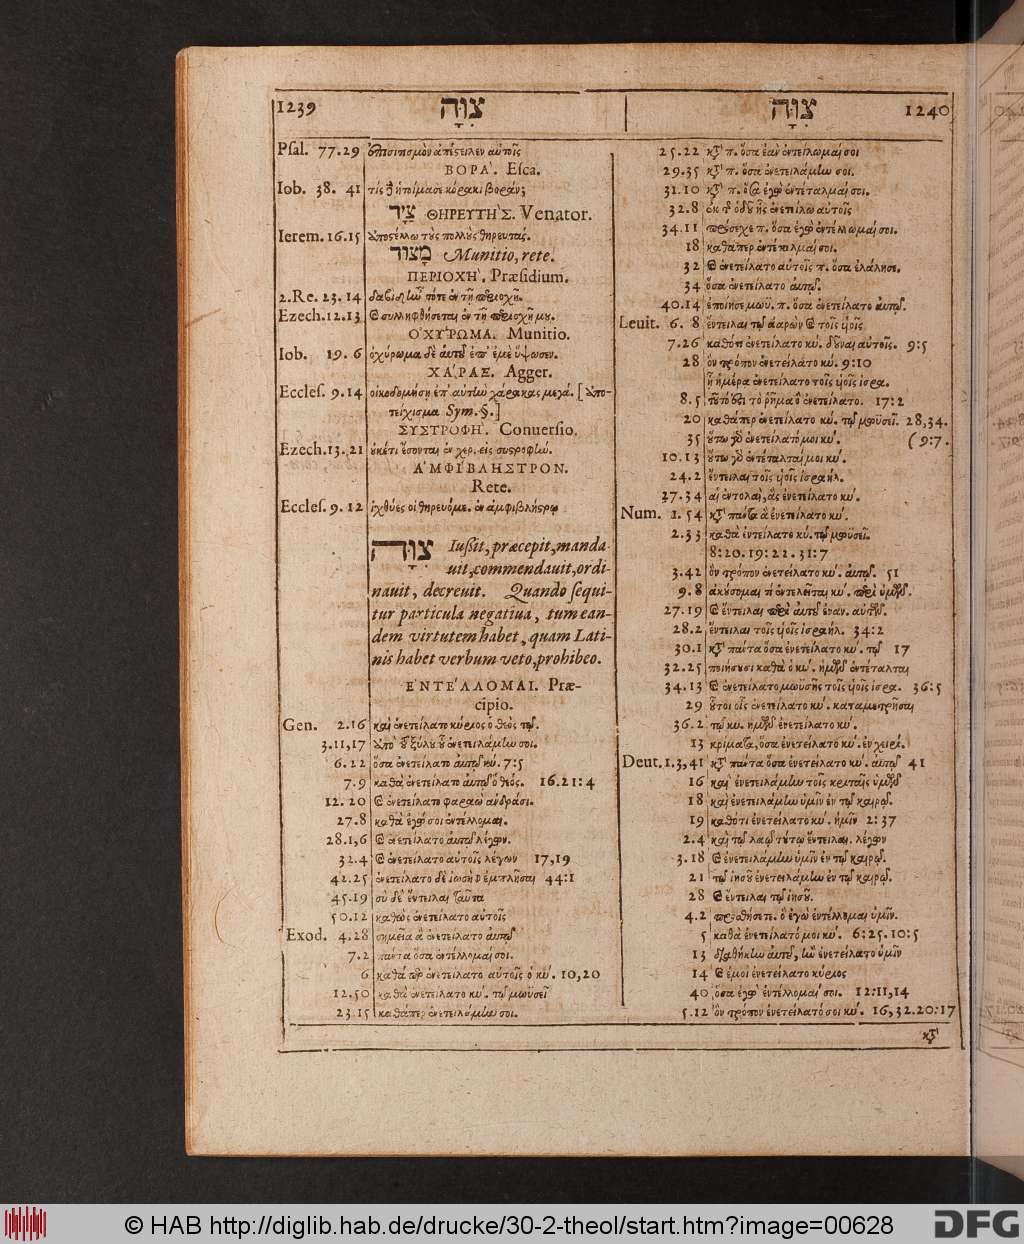 1239 צִוָּה
צִוָּה 1240
Psal. 77.29 ἐπισιτισμὸν ἀπέστειλεν αὐτοῖς
ΒΟΡΑ'. Esca.
Iob. 38. 41 τίς δὲ ἡτοίμασε κόρακι βοράν;
צַיָּד ΘΗΡΕΥΤΗ'Σ. Venator.
Ierem. 16.15 ἀποστέλλω τοὺς πολλοὺς θηρευτάς.
מָצוֹד Munitio, rete.
ΠΕΡΙΟΧΗ'. Præsidium.
2.Re. 23. 14 δαβὶδ ἦν τότε ἐν τῇ περιοχῇ.
Ezech. 12.13 καὶ συλληφθήσεται ἐν τῇ περιοχῇ μου.
ΟΧΥ'ΡΩΜΑ. Munitio.
Iob. 19. 6 ὀχύρωμα δὲ αὐτοῦ ἐπ' ἐμὲ ὕψωσεν.
ΧΑ'ΡΑΞ. Agger.
Ecclef. 9.14 οἰκοδομήσῃ ἐπ' αὐτὴν χάρακας μεγά. [ ἀπο-
τείχισμα Sym. §.]
ΣΥΣΤΡΟΦΗ'. Conuersio.
Ezech. 13. 21 οὐκέτι ἔσονται ἐν χερ. εἰς συστροφήν.
Α'ΜΦΙΒΛΗΣΤΡΟΝ.
Rete.
Ecclef. 9. 12 ἰχθύες οἱ θηρευόμε. ἐν ἀμφιβλήστρῳ
צִוָּה Iussit, præcepit, manda-
uit, commendauit, ordi-
nauit, decreuit. Quando sequi-
tur particula negatiua, tum ean-
dem virtutem habet, quam Lati-
nis habet verbum veto, prohibeo.
ΕΝΤΕ'ΛΛΟΜΑΙ. Præ-
cipio.
Gen. 2.16 καὶ ἐνετείλατο κύριος ὁ θεὸς τῷ.
3.11,17 ἀπὸ τοῦ ξύλου οὗ ἐνετειλάμην σοι.
6.22 ὅσα ἐνετείλατο αὐτῷ κύ. 7:5
7.9 καθὰ ἐνετείλατο αὐτῷ ὁ θεός. 16.21:4
12. 20 καὶ ἐνετείλατο φαραὼ ἀνδράσι.
27.8 καθὰ ἐγώ σοι ἐντέλλομαι.
28.1,6 καὶ ἐνετείλατο αὐτῷ λέγων.
32.4 καὶ ἐνετείλατο αὐτοῖς λέγων 17,19
42.25 ἐνετείλατο δὲ ἰωσὴφ ἐμπλῆσαι 44:1
45.19 σὺ δὲ ἔντειλαι ταῦτα
50.12 καθὼς ἐνετείλατο αὐτοῖς
Exod. 4.28 σημεῖα ἃ ἐνετείλατο αὐτῷ
7.2 πάντα ὅσα ἐντέλλομαί σοι.
6 καθάπερ ἐνετείλατο αὐτοῖς ὁ κύ. 10,20
12.50 καθὰ ἐνετείλατο κύ. τῷ μωϋσεῖ
23.15 καθάπερ ἐνετειλάμην σοι.
25.22 κατὰ π. ὅσα ἐὰν ἐντείλωμαί σοι
29.35 κατὰ π. ὅσα ἐνετειλάμην σοι.
31.10 κατὰ π. ὅσα ἐγὼ ἐντέταλμαί σοι.
32.8 ἐκ τῆς ὁδοῦ ἧς ἐνετείλω αὐτοῖς
34.11 πρόσεχε π. ὅσα ἐγὼ ἐντέλλωμαί σοι.
18 καθάπερ ἐντέταλμαί σοι.
32 καὶ ἐνετείλατο αὐτοῖς π. ὅσα ἐλάλησε.
34 ὅσα ἐνετείλατο αὐτῷ.
40.14 ἐποίησε μωϋ. π. ὅσα ἐνετείλατο αὐτῷ.
Leuit. 6. 8 ἔντειλαι τῷ ἀαρὼν καὶ τοῖς υἱοῖς
7.26 καθότι ἐνετείλατο κύ. δοῦναι αὐτοῖς. 9:5
28 ὃν τρόπον ἐνετείλατο κύ. 9:10
ᾗ ἡμέρᾳ ἐνετείλατο τοῖς υἱοῖς ἰσρα.
8.5 τοῦτό ἐστι τὸ ῥῆμα ὃ ἐνετείλατο. 17:2
20 καθάπερ ἐνετείλατο κύ. τῷ μωϋσεῖ. 28,34.
35 οὕτω γὰρ ἐνετείλατό μοι κύ. ( 9:7.
10.13 οὕτω γὰρ ἐντέταλταί μοι κύ.
24.2 ἔντειλαι τοῖς υἱοῖς ἰσραήλ.
27.34 αἱ ἐντολαὶ, ἃς ἐνετείλατο κύ.
Num. 1. 54 κατὰ πάντα ἃ ἐνετείλατο κύ.
2.33 καθὰ ἐντείλατο κύ. τῷ μωϋσεῖ.
8:20.19:22.31:7
3.42 ὃν τρόπον ἐνετείλατο κύ. αὐτῷ. 51
9.8 ἀκούσομαι τί ἐντελεῖται κύ. περὶ ὑμῶν.
27.19 καὶ ἔντειλαι περὶ αὐτοῦ ἔναν. αὐτῶν.
28.2 ἔντειλαι τοῖς υἱοῖς ἰσραήλ. 34:2
30.1 κατὰ πάντα ὅσα ἐνετείλατο κύ. τῷ 17
32.25 ποιήσουσι καθὰ ὁ κύ. ἡμῶν ἐντέταλται
34.13 καὶ ἐνετείλατο μωϋσῆς τοῖς υἱοῖς ἰσρα. 36:5
29 οὗτοι οἷς ἐνετείλατο κύ. καταμετρῆσαι
36.2 τῷ κυ. ἡμῶν ἐνετείλατο κύ.
13 κρίματα, ὅσα ἐνετείλατο κύ. ἐν χειρί.
Deut. 1.3,41 κατὰ πάντα ὅσα ἐνετείλατο κύ. αὐτῷ 41
16 καὶ ἐνετειλάμην τοῖς κριταῖς ὑμῶν
18 καὶ ἐνετειλάμην ὑμῖν ἐν τῷ καιρῷ.
19 καθότι ἐνετείλατο κύ. ἡμῖν 2:37
2.4 καὶ τῷ λαῷ τούτῳ ἔντειλαι. λέγων
3.18 καὶ ἐνετειλάμην ὑμῖν ἐν τῷ καιρῷ.
21 τῷ ἰησοῦ ἐνετειλάμην ἐν τῷ καιρῷ.
28 καὶ ἔντειλαι τῷ ἰησοῦ.
4.2 προσθήσετε. ὃ ἐγὼ ἐντέλλομαι ὑμῖν.
5 καθὰ ἐνετείλατό μοι κύ. 6:25.10:5
13 διαθήκην αὐτοῦ, ἣν ἐνετείλατο ὑμῖν
14 καὶ ἐμοὶ ἐνετείλατο κύριος
40 ὅσα ἐγὼ ἐντέλλομαί σοι. 12:11,14
5.12 ὃν τρόπον ἐνετείλατό σοι κύ. 16,32.20:17
κατὰ
© HAB http://diglib.hab.de/drucke/30-2-theol/start.htm?image=00628
DFG